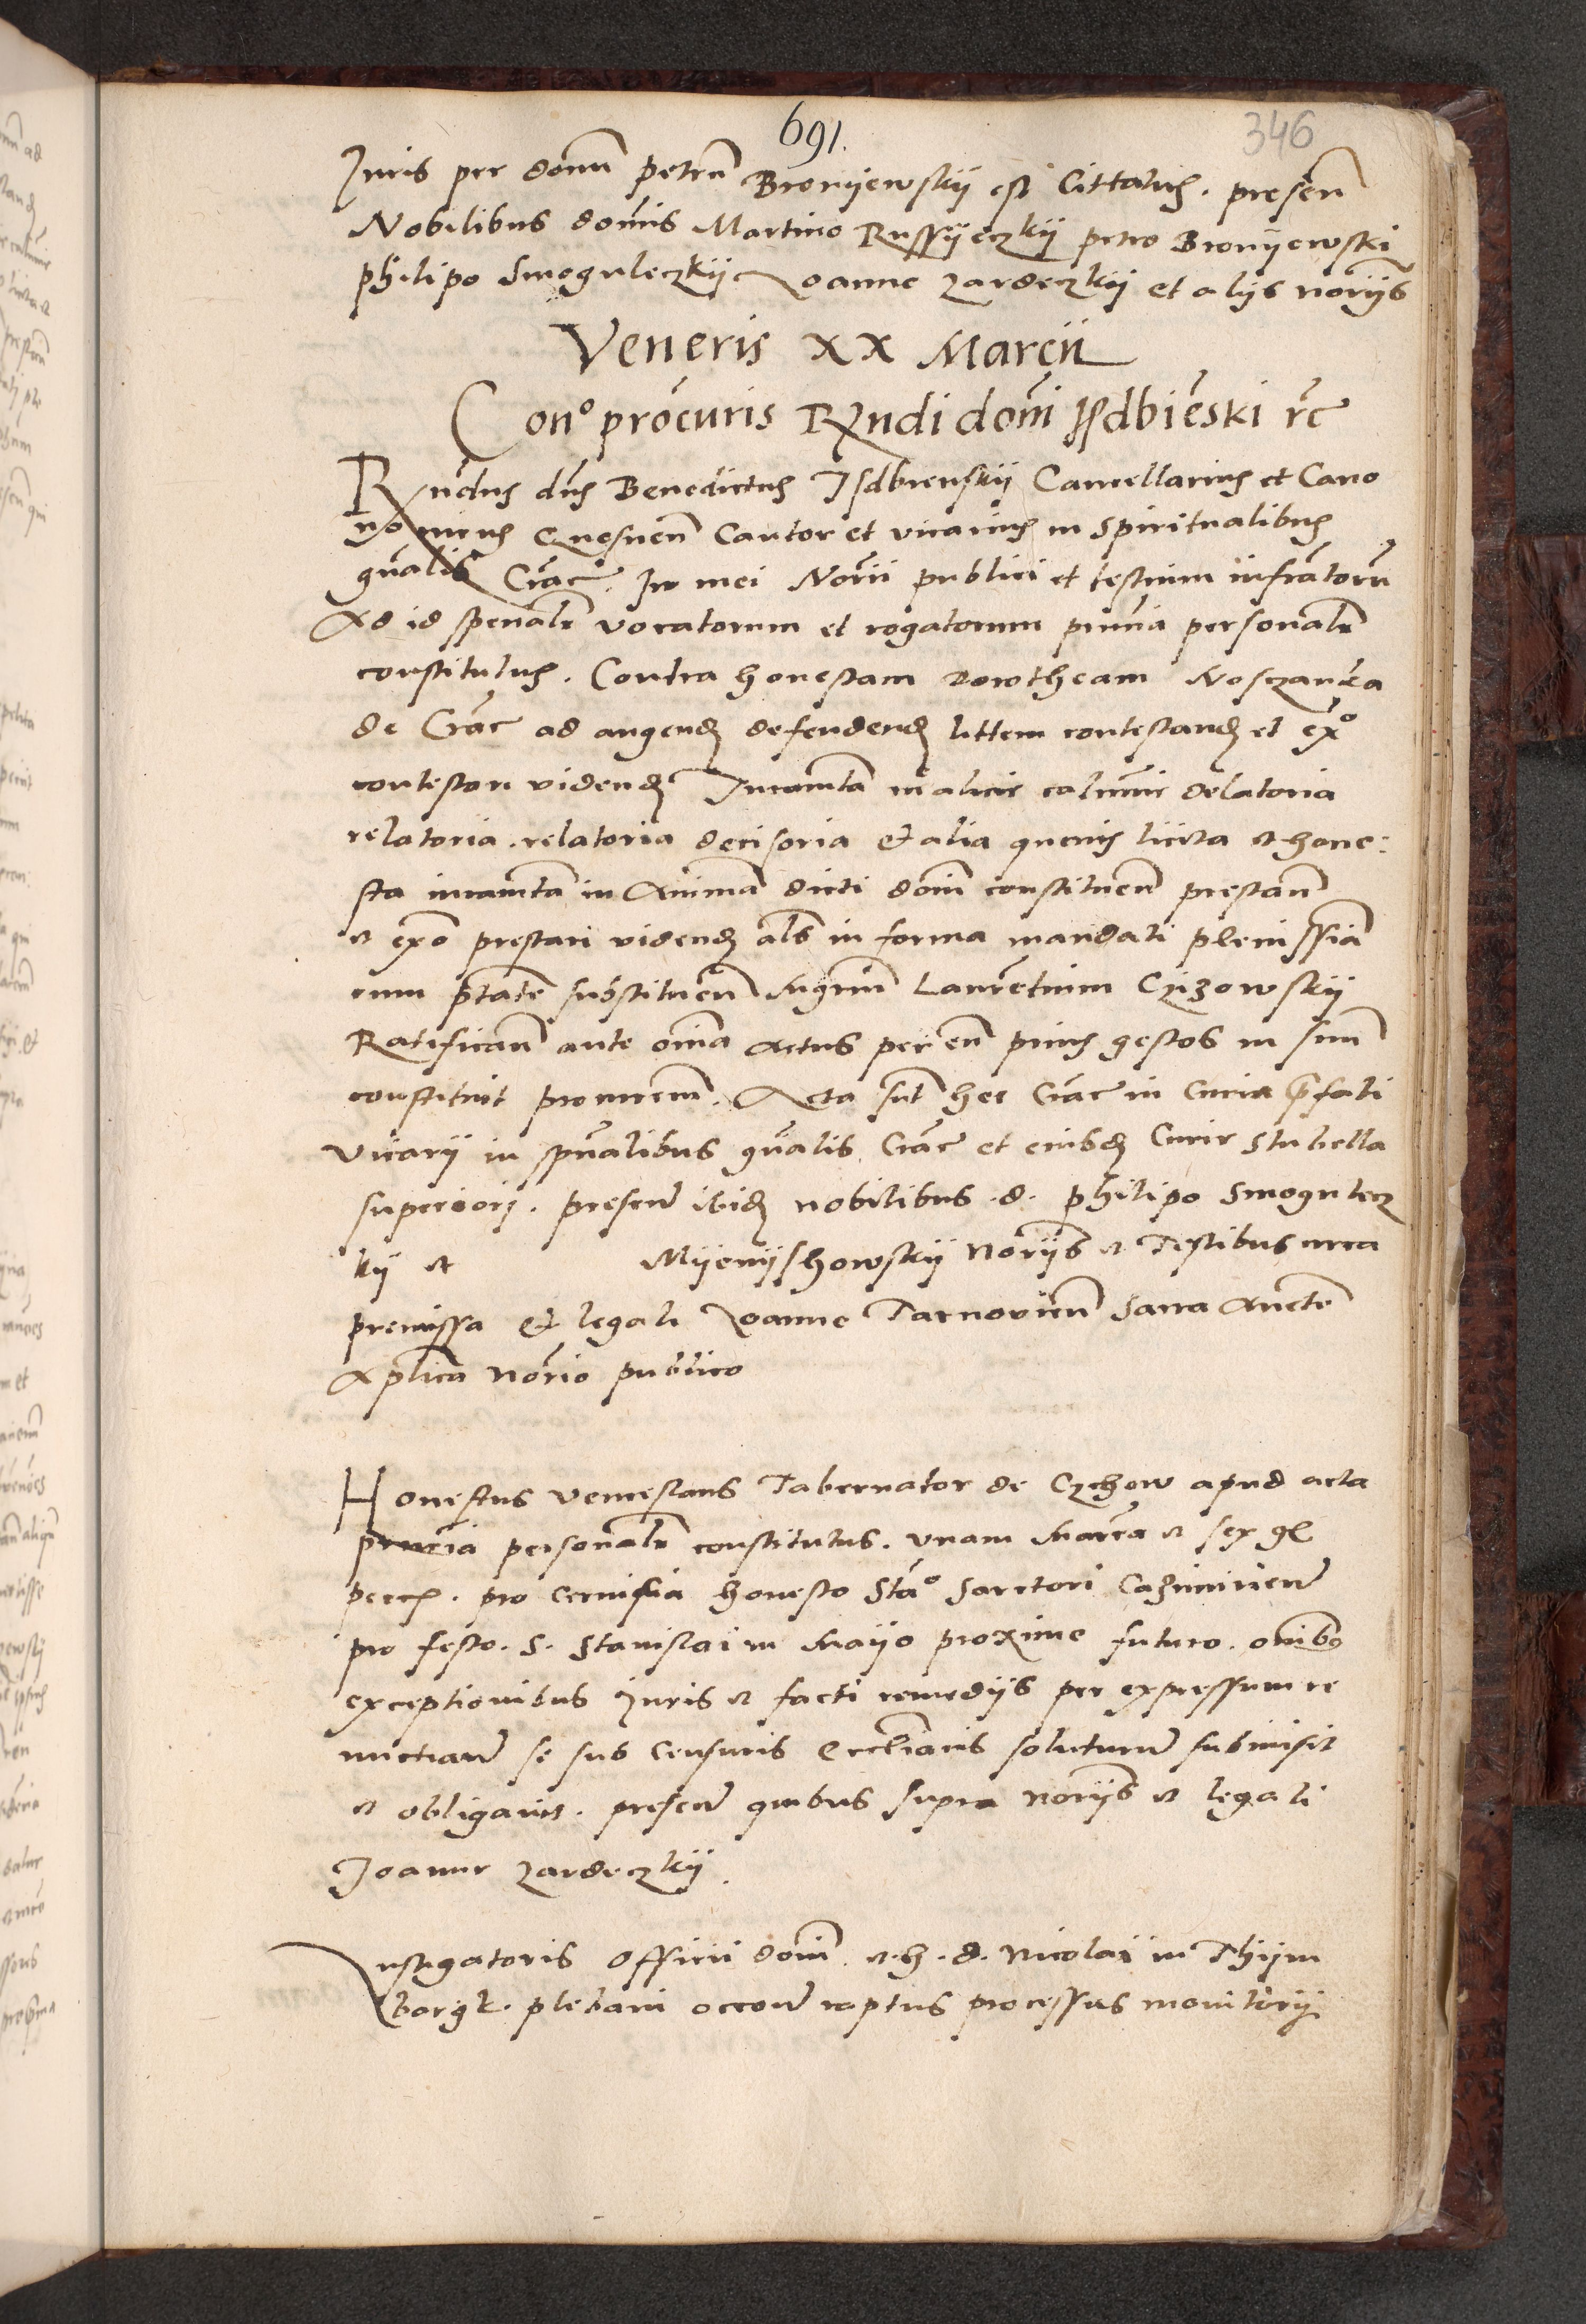 691.
346
Juris per domu petru Bronyewskÿ est Cittatus . presen
Nobilibus domis Martino Russÿeczkÿ petro Bronÿewski
philipo Smoguleczkÿ Joanne Zardeczkÿ et alÿs norÿs
Veneris XX Marcii
Cono procuris Rndi domi Isdbienski rc
Rndus dns Benedictus Isdbienskÿ Cancellarius et Cano
nicus Gnesnen Cantor et vicarius in spiritualibus
gnalis Crac. In mei Norii publici et testium infratoru
Ad id spenalr vocatorum et rogatorum pnnia personalr
constitutus . Contra honestam Dorotheam Nosczanka
de Crac ad angend defendend littem contestand et exo
contestari vidend Juramta malicie calumnie delatoria
relatoria . relatoria decisoria et alia quenis licita et hone:
sta iuramta in Animā dicti domi constituen prestan
et exo prestari vidend als in forma mandati plenissia
cum ptate substituen Mgrum Laurentium Czizowskÿ
Ratifican ante omia actus per eu prius gestos in suu
constituit procurem . Acta sut hec Crac in Curia pfati
vicarÿ in spualibus gnalis Crac et eiusd Curie stubella
superiori . presen ibid nobilibus . d . philipo Smogulecz
kÿ et Mÿenÿshowskÿ norÿs et Testibus circa
premissa et legali Joanne Tarnovien Sacra Aucte
Aplica norio publico
Honestus venceslaus Tabernator de Czchow apud acta
pncia personalr constitutus . unam Marca et sex gs
pecc . pro cervisia honesto Stao Sartori Cazimirien
pro festo . S . Stanislai in Maÿo proxime futuro . omibus
exceptionibus Juris et facti remedÿs per expressum re
nuctian se sub censuris Eccliacis soluturu submisit
et obligavit . presen quibus supra norÿs et legali
Joanne Zardeczkÿ .
Instigatoris Officii domi . et . h . d . Nicolai in Thÿm
bargk . plebani occon raptus processus monitorÿ